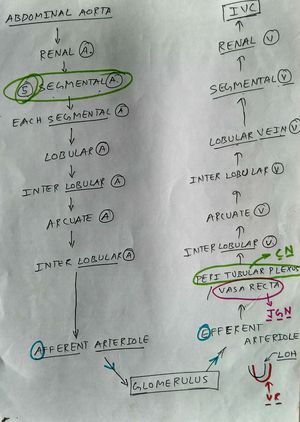 ABDOMINAL AORTA
RENAL A.
5 SEGMENTAL A.
EACH SEGMENTAL A
LOBULAR A
INTER LOBULAR A
ARCUATE A
INTER LOBULAR A
AFFERENT ARTERIOLE
GLOMERULUS
IVC
RENAL V
SEGMENTAL V
LOBULAR VEIN V
INTER LOBULAR V
ARCUATE V
INTER LOBULAR V.
CN
PERI TUBULAR PLEXUS
VASA RECTA
JGN
EFFERENT
ARTERIOLE
LOH
VR